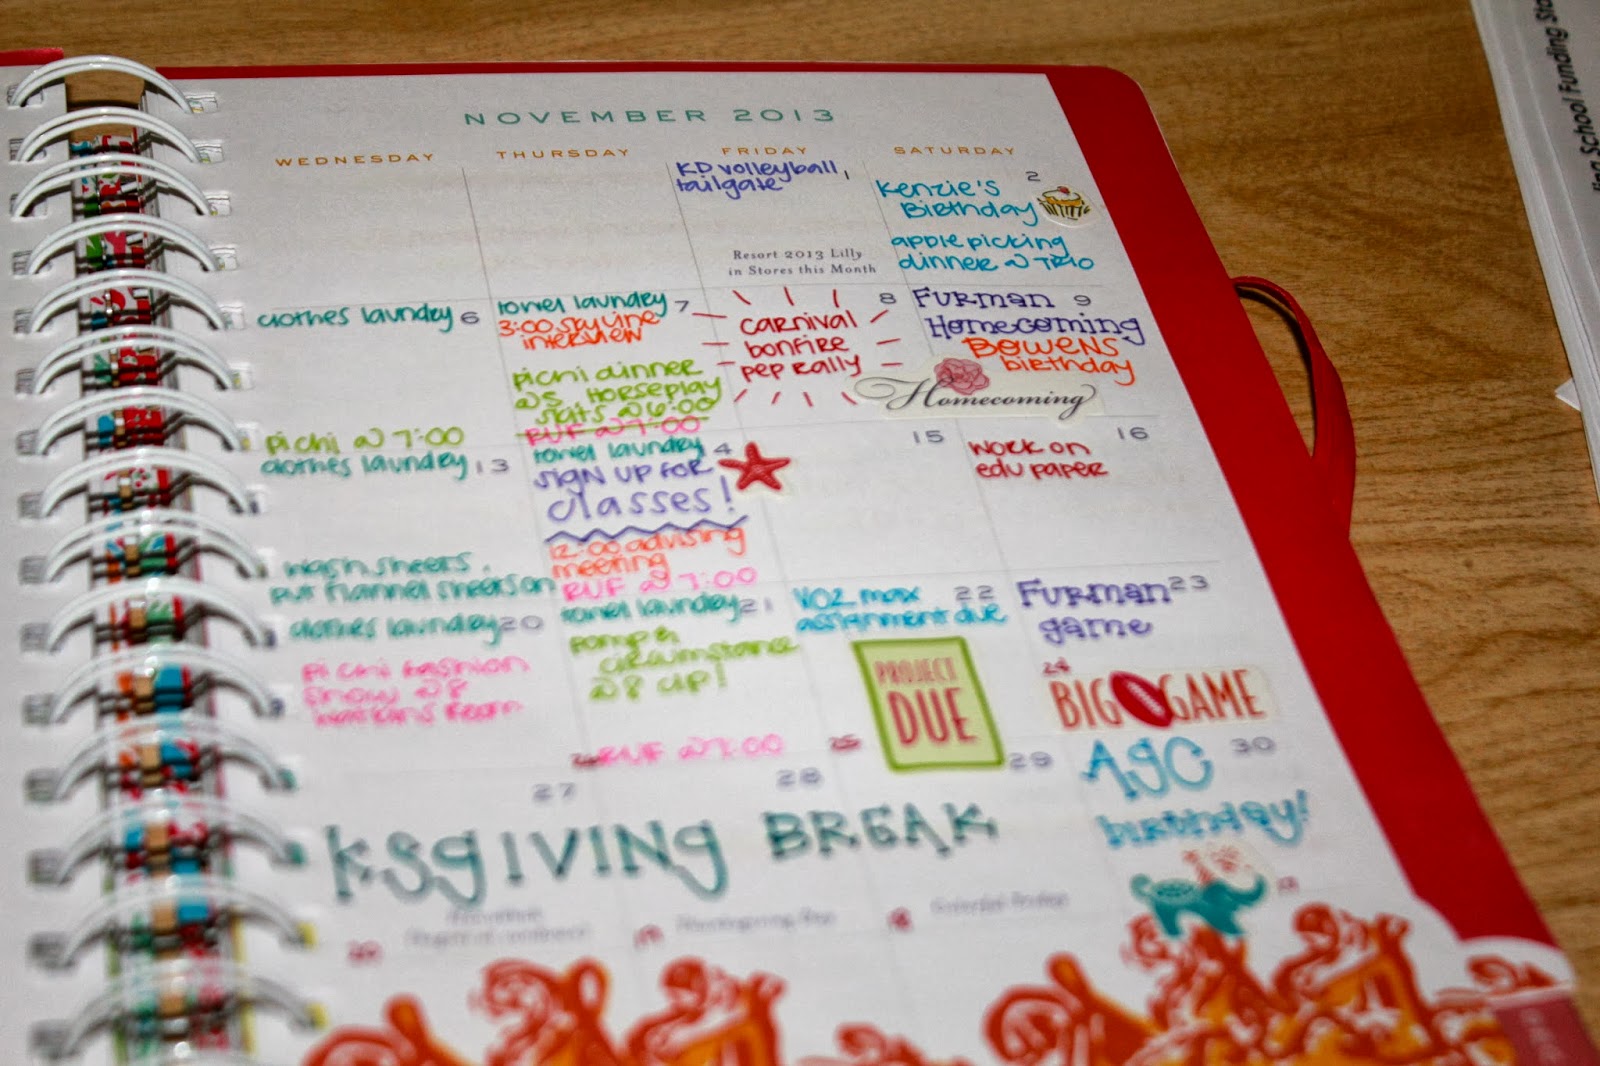 NOVEMBER 2013
WEDNESDAY
THURSDAY
FRIDAY
SATURDAY
KD volleyball,
tailgate
Resort 2013 Lilly
in Stores this Month
2
Kenzie's
Birthday
apple picking
dinner @ TRIO
clothes laundry 6
pi chi @ 7:00
towel laundry 7
3:00 skyline
interview
pichi dinner
@5, Horseplay
skits @ 6:00
RUF @ 7:00
8
carnival
bonfire
pep rally
Furman 9
Homecoming
Bowens
birthday
Homecoming
clothes laundry 13
wash sheets,
put flannel sheets on
towel laundry 4
sign up for
classes!
12:00 advising
meeting
RUF @ 7:00
15
16
work on
edu paper
clothes laundry 20
pi chi fashion
show @ 8
towel laundry 21
pomp &
circumstance
@ 8 up!
RUF @ 7:00
VO2 max 22
assignment due
PROJECT
DUE
Furman 23
game
24
BIG GAME
27
28
25
29
30
KSGIVING BREAK
AGC
birthday!
Thanksgiving Day
School Funding